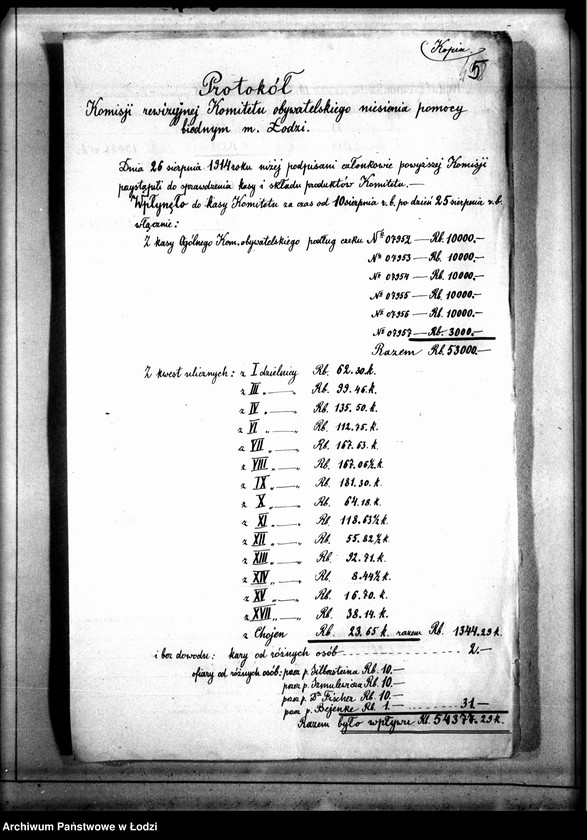 (Kopia)
5
Protokół
Komisji rewizyjnej Komitetu obywatelskiego niesienia pomocy
biednym m. Łodzi.
Dnia 26 sierpnia 1914 roku niżej podpisani członkowie powyższej Komisji
przystąpili do sprawdzenia kasy i składu produktów Komitetu.—
Wpłynęło do kasy Komitetu za czas od 10 sierpnia r. b. po dzień 25 sierpnia r. b.
włącznie:
Z kasy Ogólnego Kom. obywatelskiego podług czeku № 07952 — Rb. 10000.—
№ 07953 — Rb. 10000.—
№ 07954 — Rb. 10000.—
№ 07955 — Rb. 10000.—
№ 07956 — Rb. 10000.—
№ 07957 — Rb. 3000.—
Razem Rb. 53000.—
Z kwest ulicznych: z I dzielnicy Rb. 62.30.k.
z III „ —— Rb. 99.46.k.
z IV „ —— Rb. 135.50.k.
z VI „ —— Rb. 112.75.k.
z VII „ —— Rb. 167.63.k.
z VIII „ —— Rb. 167.06½ k.
z IX „ —— Rb. 181.30.k.
z X „ —— Rb. 64.18.k.
z XI „ —— Rb. 118.63½ k.
z XII „ —— Rb. 55.82½ k.
z XIII „ —— Rb. 92.71.k.
z XIV „ —— Rb. 8.44½ k.
z XV „ —— Rb. 16.70.k.
z XVII „ —— Rb. 38.14.k.
z Chojen Rb. 23.65 k. razem Rb. 1344.29 k.
i bez dowodu: kary od różnych osób 2.—
ofiary od różnych osób: przez p. Zilbersteina Rb. 10.—
przez p. Szmulewicza Rb. 10.—
przez p. Dra Fischer Rb. 10.—
przez p. Bejenke Rb. 1.— 31—
Razem było wpływu Rb. 54377.29 k.
Archiwum Państwowe w Łodzi